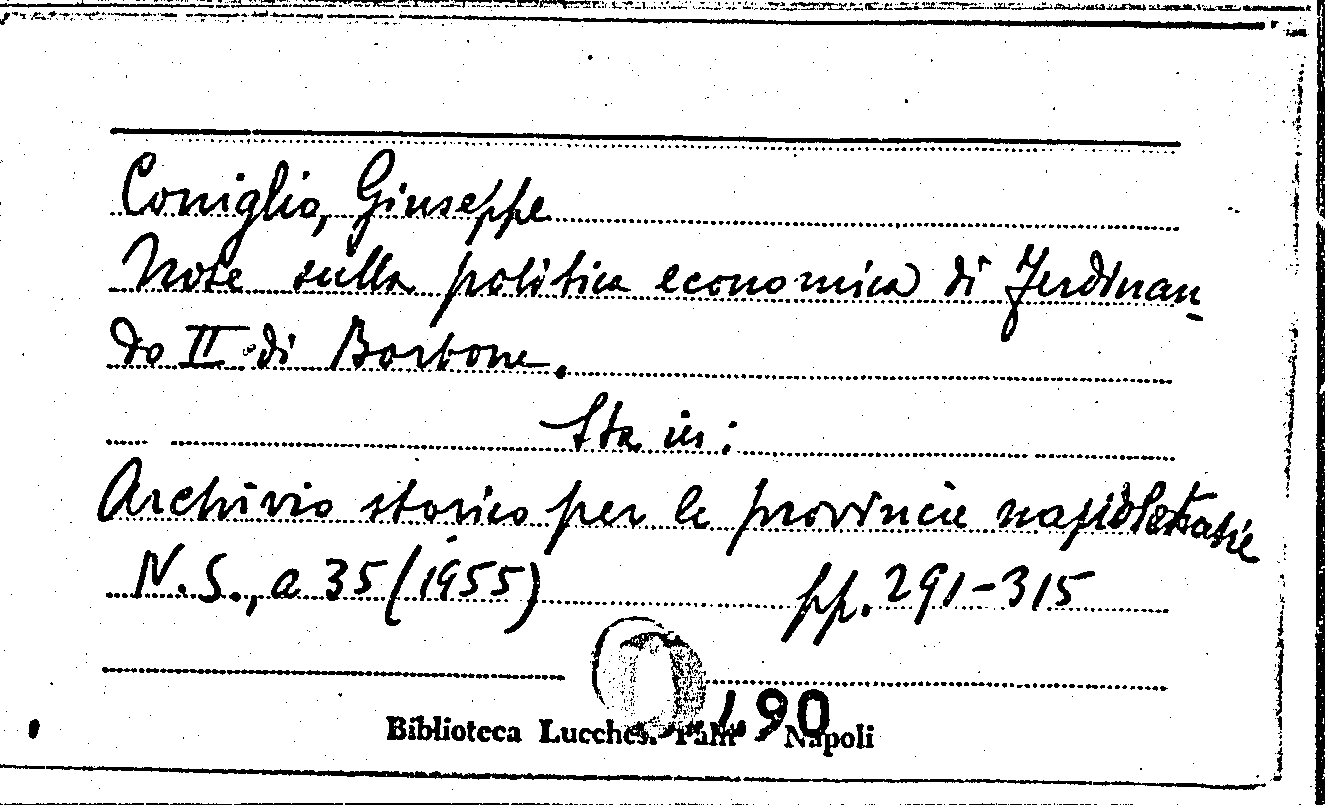 Coniglio, Giuseppe
Note sulla politica economica di Ferdinan-
do II di Borbone.
Sta in:
Archivio storico per le provincie napoletane
N.S., a 35 (1955) pp. 291-315
190
Biblioteca Lucches. Palli Napoli